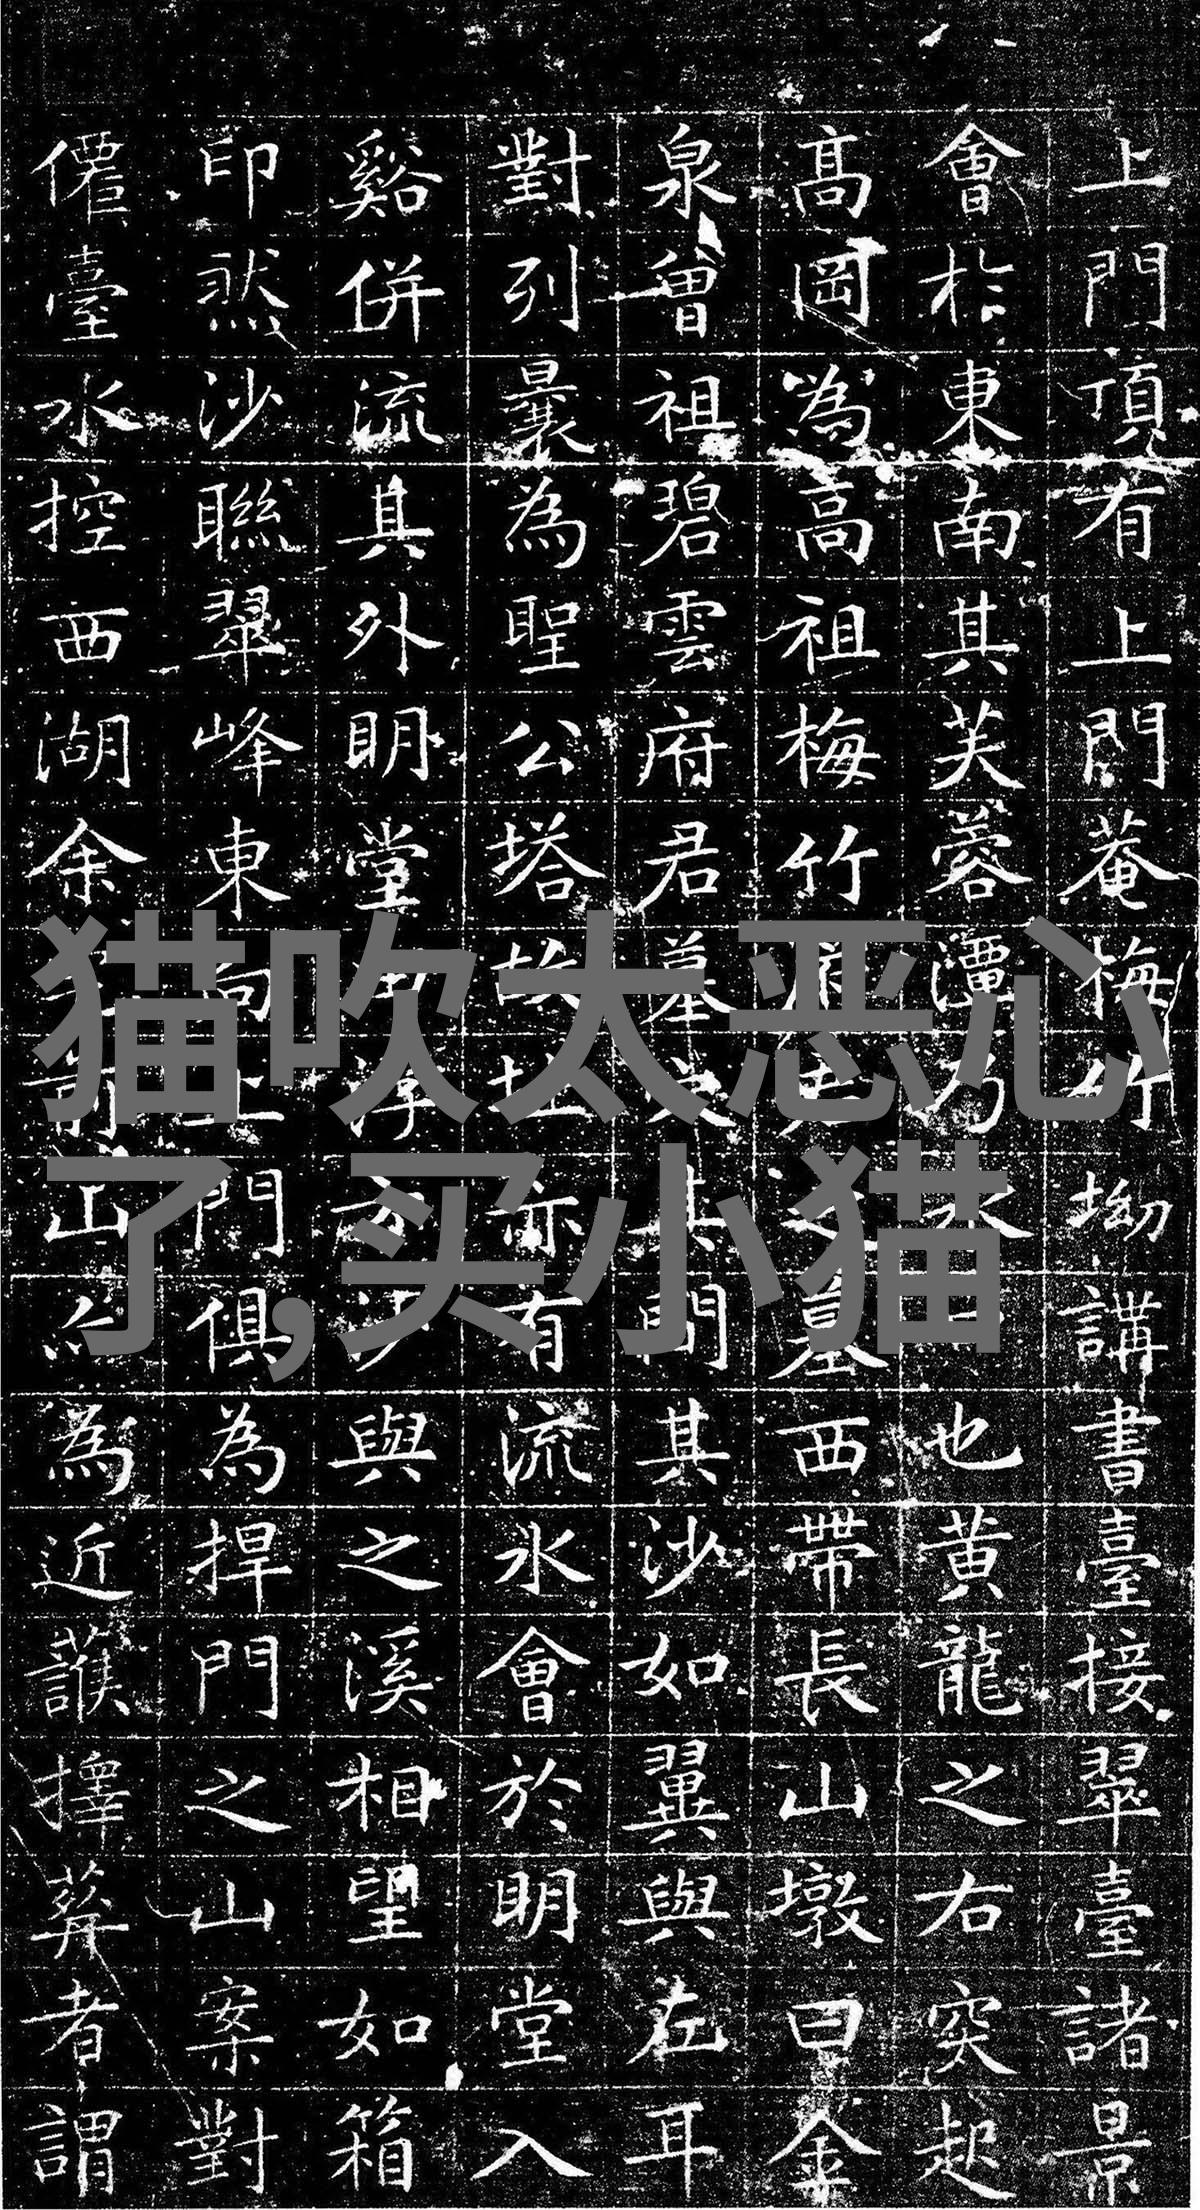 上門頂有上門菴梅竹坳講書臺接翠臺諸景
會於東南其芙蓉潭乃水也黃龍之右突起
高岡為高祖梅竹府君之墓西帶長山墩曰金
泉曾祖碧雲府君墓其門其沙如翼與左耳
對列曩為聖公塔故址亦有流水會於明堂入
谿併流其外明堂浮沙與之溪相望如箱
印然沙聯翠峰東向上門俱為捍門之山案對
僊臺水控西湖余前山為近讓擇葬者謂
猫吹太恶心
了,买小猫